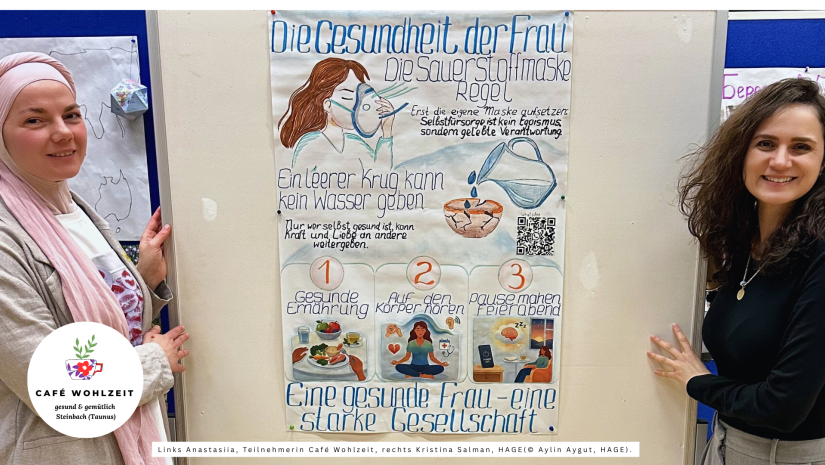 Die Gesundheit der Frau
Die Sauerstoffmaske
Regel
Erst die eigene Maske aufsetzen.
Selbstfürsorge ist kein Egoismus,
sondern gelebte Verantwortung.
Ein leerer Krug kann
kein Wasser geben
Nur wer selbst gesund ist, kann
Kraft und Liebe an andere
weitergeben.
1
Gesunde
Ernährung
2
Auf den
Körper hören
3
Pause mahen,
Feierabend
zzz
Eine gesunde Frau - eine
starke Gesellschaft
CAFÉ WOHLZEIT
gesund & gemütlich
Steinbach (Taunus)
Links Anastasiia, Teilnehmerin Café Wohlzeit, rechts Kristina Salman, HAGE(© Aylin Aygut, HAGE).